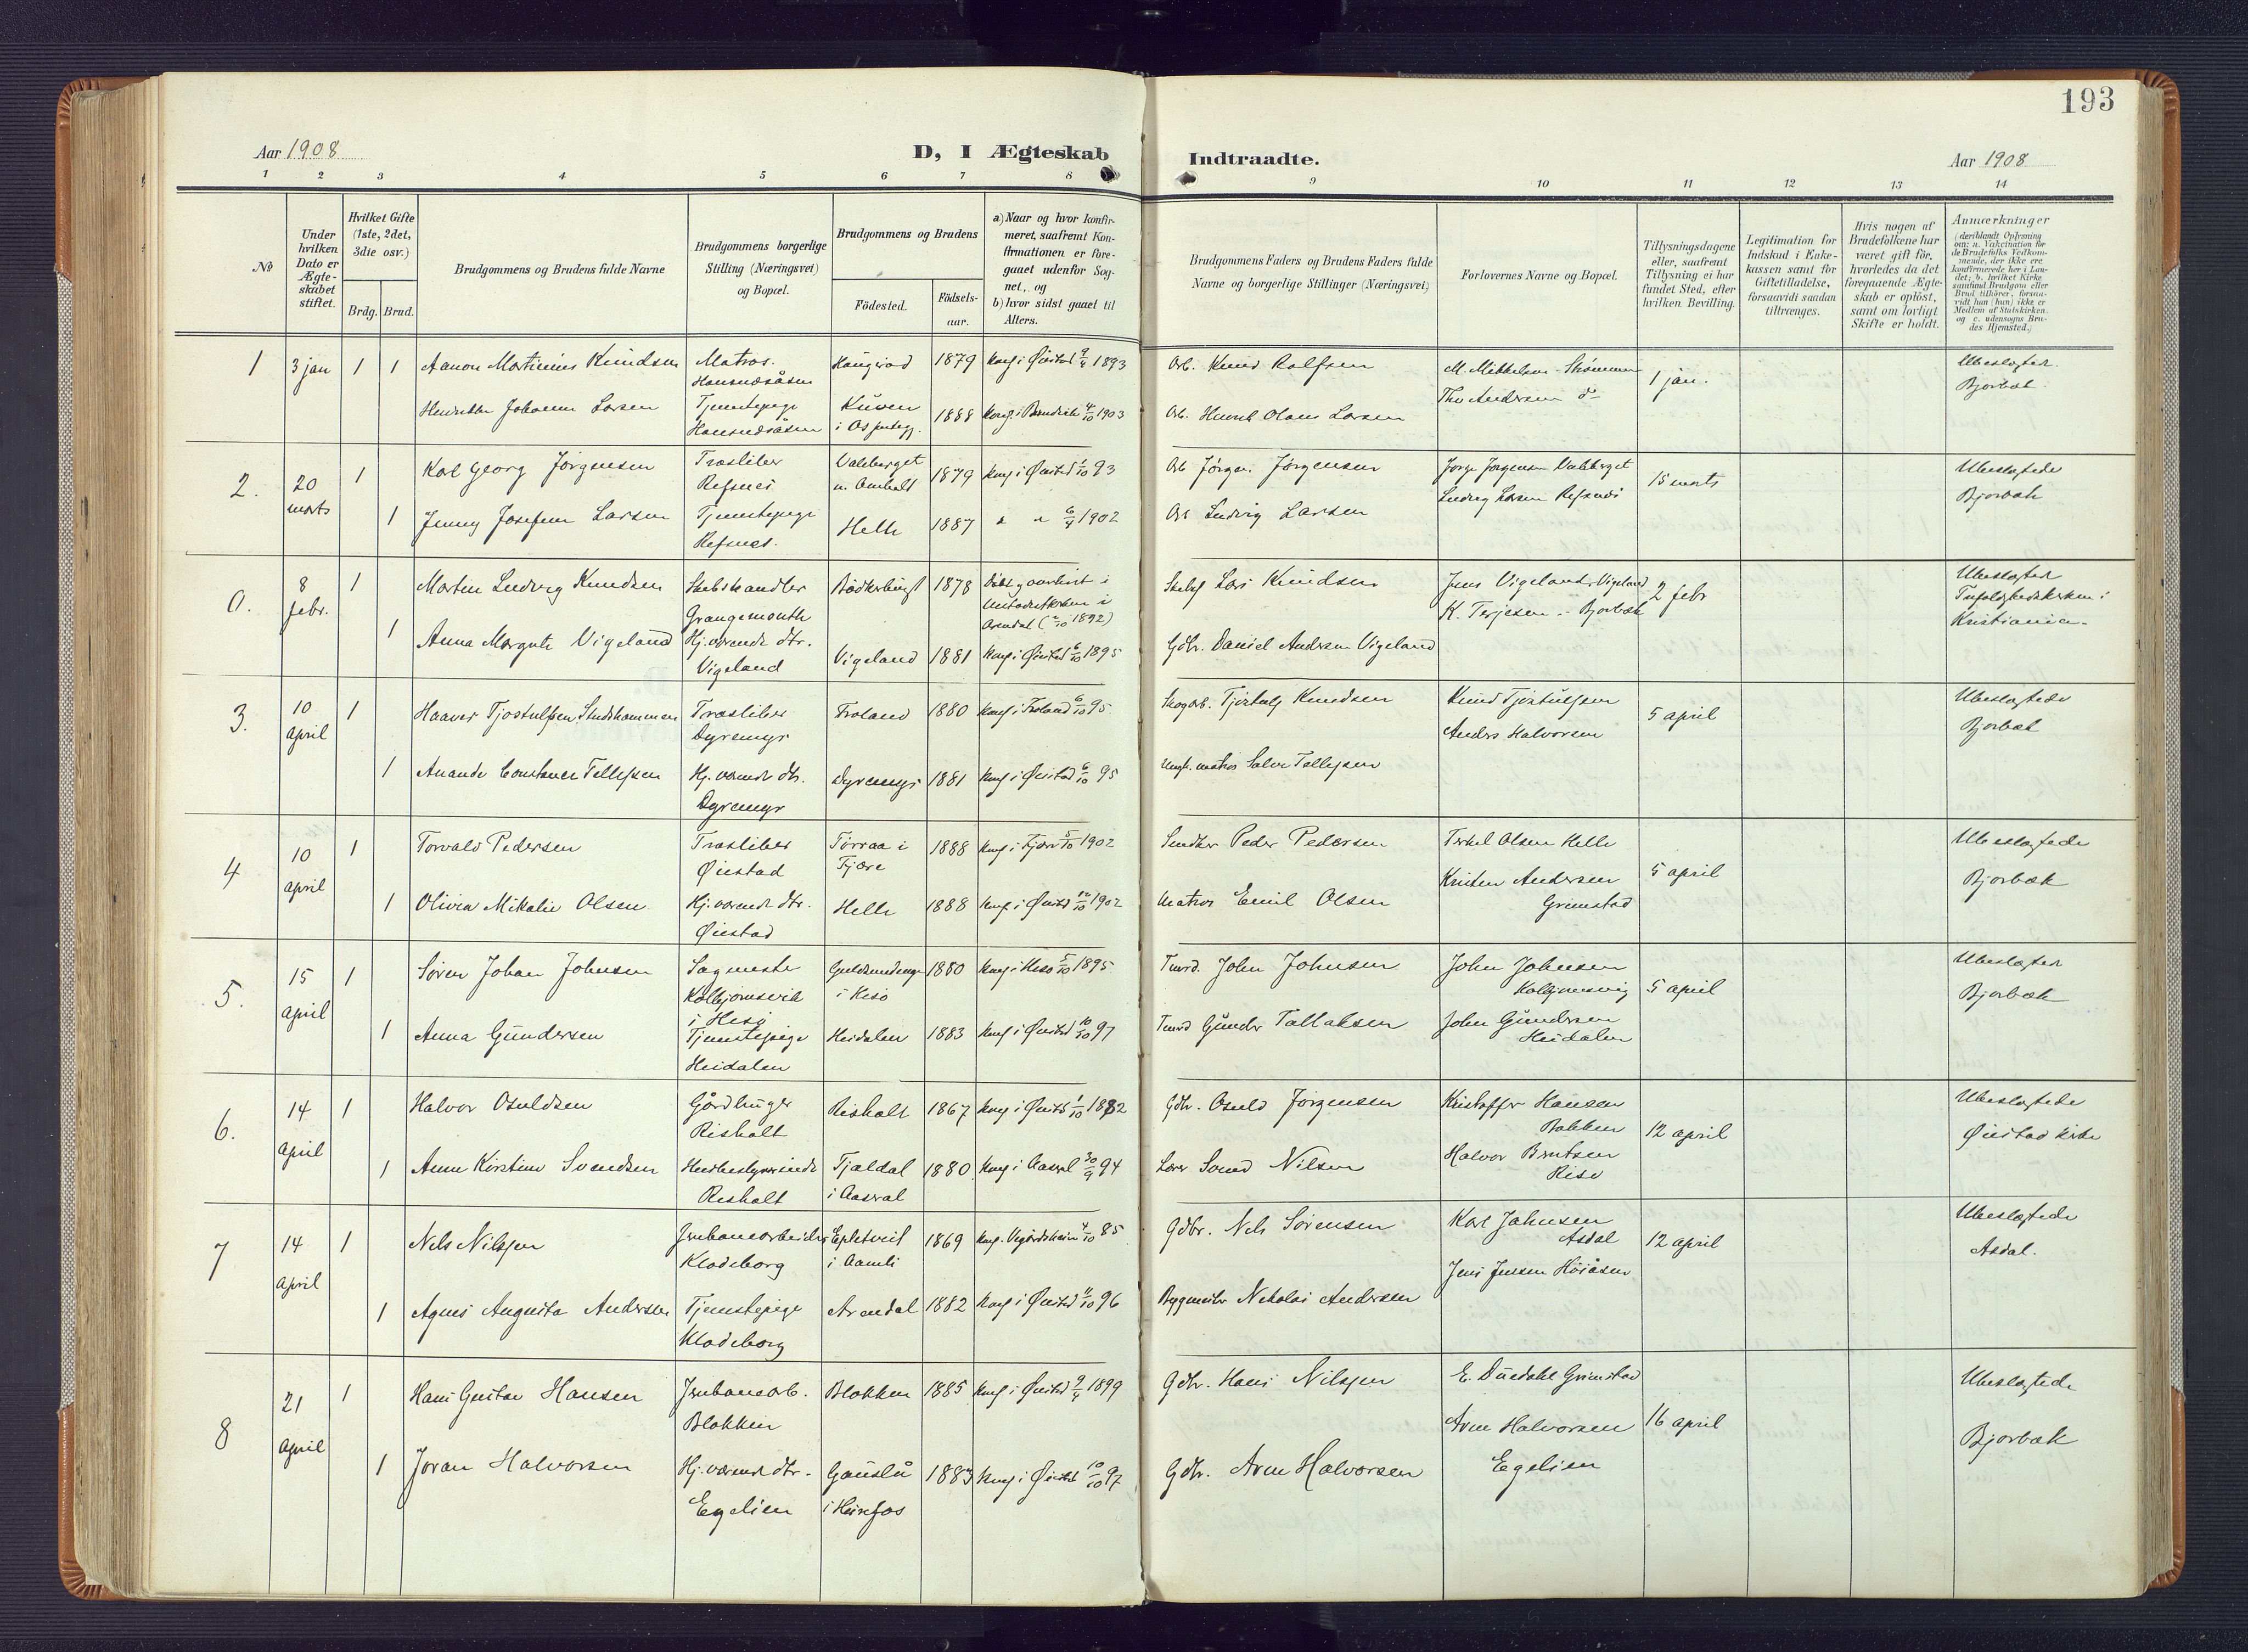 193
Aar 1908
D, I Ægteskab Indtraadte.
Aar 1908
1 2 3 4 5 6 7 8 9 10 11 12 13 14
No
Under hvilken Dato er Ægteskabet stiftet.
Hvilket Gifte (1ste, 2det, 3die osv.)
Brdg. Brud.
Brudgommens og Brudens fulde Navne
Brudgommens borgerlige Stilling (Næringsvei) og Bopæl.
Brudgommens og Brudens
Fødested.
Fødsels-aar.
a) Naar og hvor konfirmeret, saafremt Konfirmationen er foregaaet udenfor Sognet, og
b) hvor sidst gaaet til Alters.
Brudgommens Faders og Brudens Faders fulde Navne og borgerlige Stillinger (Næringsvei)
Forlovernes Navne og Bopæl.
Tillysningsdagene eller, saafremt Tillysning ei har fundet Sted, efter hvilken Bevilling.
Legitimation for Indskud i Enkekassen samt for Giftetilladelse, forsaavidt saadan tiltrænges.
Hvis nogen af Brudefolkene har været gift før, hvorledes da det foregaaende Ægteskab er opløst, samt om lovligt Skifte er holdt.
Anmærkninger
(deriblandt Oplysning om: a. Vakcination for de Brudefolks Vedkommende, der ikke ere konfirmerede her i Landet; b. hvilket Kirkesamfund Brudgom eller Brud tilhører, forsaavidt han (hun) ikke er Medlem af Statskirken. og c. udensogns Brudes Hjemsted.)
1 3 jan 1 1 Aanon Martinius Knudsen Matros. 1879 Konf i Øiestad 9/4 1893 Arb. Knud Rolfsen M. Mikkelsen Strømmen 1 jan. Ubeslægtede
Bjorbæk
Tho Andersen do
Henriette Johanne Larsen Tjenestepige 1888 4/10 1903 Arb. Henrik Olaus Larsen
2. 20 marts 1 Karl Georg Jørgensen Træsliber
Refsnes Valeberget 1879 Konf i Øiestad 1/10 93 Arb Jørgen Jørgensen Jørgen Jørgensen Valeberget 15 marts Ubeslægtede
Bjorbæk
1 Jenny Josefine Larsen Tjenestepige
Refsnes. Helle 1887 " " 6/4 1902 Arb Ludvig Larsen Ludvig Larsen Refsnes
0. 8 febr. 1 Martin Ludvig Knudsen Skibshandler
Grangemouth 1878 Døbt i
Arendal (2/10 1892) Lars Knudsen Jens Vigeland, Vigeland 2 febr Ubeslægtede
Trefoldighedskirken i
Kristiania.
1 Anna Margrete Vigeland Hj.værende dtr.
Vigeland Vigeland 1881 Konf i Øiestad 6/10 1895 Gdbr. Daniel Andersen Vigeland K. Terjesen - Bjorbæk
3. 10 april 1 Haaver Tjostulfsen Træsliber
Dyremyr Froland 1880 Konf i Froland 6/10 95 Skogarb. Tjostulf Knudsen Knud Tjostulfsen 5 april Ubeslægtede
Bjorbæk
Anders Halvorsen
1 Anande Constance Tellefsen Hj.værende dtr.
Dyremyr Dyremyr 1881 Konf i Øiestad 6/10 95 matros Salve Tellefsen
4 10 april 1 Torvald Pedersen Træsliber
Øiestad Tørraa i
Fjære 1888 Konf i Fjære 5/10 1902 Peder Pedersen Terkel Olsen Helle 5 april Ubeslægtede
Bjorbæk
1 Olivia Mikalie Olsen Hj.værende dtr.
Øiestad Helle 1888 Konf. i Øiestad 12/10 1902 Matros Emil Olsen Kristen Andersen
Grimstad
5. 15 april 1 Søren Johan Johnsen Sagmester
Kolbjørnsvik
i Hisø
i Hisø 1880 Konf i Hisø 5/10 1895 Tmrd. John Johnsen John Johnsen
Kolbjørnsvig 5 april Ubeslægtede
Bjorbæk
1 Anna Gundersen Tjenestepige
Heidalen Heidalen 1883 Konf i Øiestad 10/10 97 Tmrd Gunder Tallaksen John Gundersen
Heidalen
6. 14 april 1 Halvor Osuldsen Gårdbruger
Risholt Risholt 1867 Konf i Øiestad 1/10 1882 Gdbr. Osuld Jørgensen Kristoffer Hansen
Bakken 12 april Ubeslægtede
Øiestad kirke
1 Anne Kirstine Svendsen Husbestyrerinde
Risholt Tjældal
i Aaseral 1880 Konf i Aaseral 30/9 94 Lærer Svend Nilsen Halvor Berntsen
Rise
7 14 april 1 Nels Nilsen Jernbanearbeider
Klodeborg Epletveit
i Aamli 1869 Konf. Vegårdsheien 4/10 85 Gdbr. Nels Sørensen Karl Johnsen
Asdal 12 april Ubeslægtede
Asdal.
1 Agnes Augusta Andersen Tjenestepige
Klodeborg Arendal 1882 Konf i Øiestad 11/10 96 Bygmester Nikolai Andersen Jens Jensen Høiåsen
8 21 april 1 Hans Gustav Hansen Jernbanearb.
Blakken Blakken 1885 Konf i Øiestad 9/4 1899 Gdbr. Hans Nilsen E. Duedahl Grimstad 16 april Ubeslægtede
Bjorbæk
1 Joran Halvorsen Hj.værende dtr.
Egelien Gauslå
i Herefos 1883 Konf i Øiestad 10/10 97 Gdbr. Aren Halvorsen Aren Halvorsen
Egelien